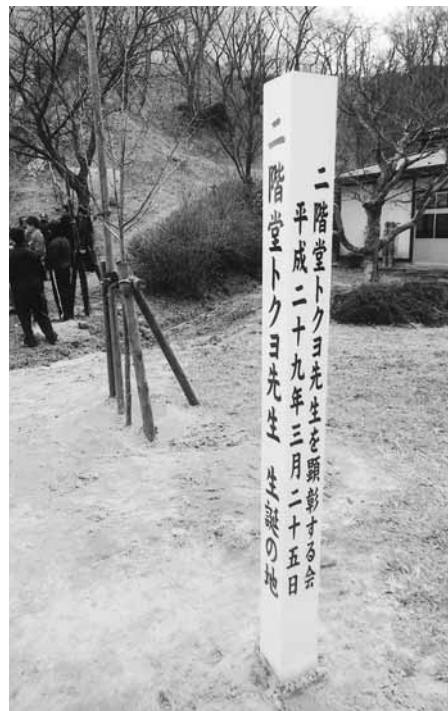 二階堂トクヨ先生を顕彰する会
平成二十九年三月二十五日
二階堂トクヨ先生 生誕の地